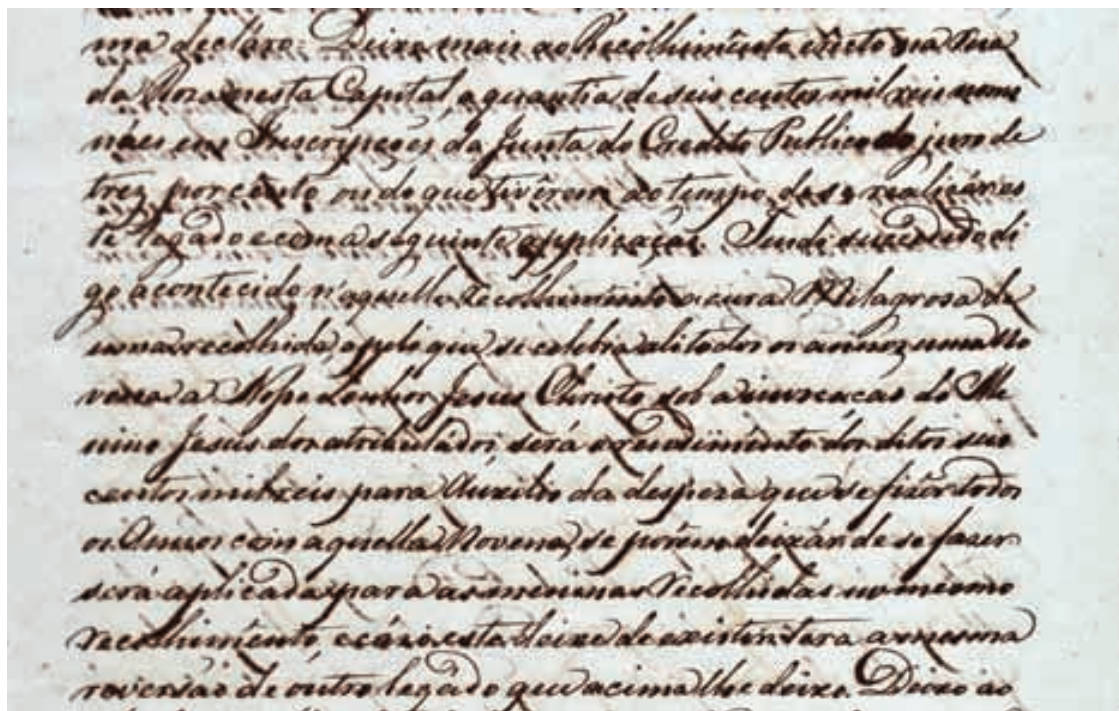 ma declaro. Deixo mais ao Recolhimento erecto na rua
da Roza nesta Capital, a quantia de seis centos mil reis nomi
náes em Inscripções da Junta do Credito Publico do juro de
trez por cento ou do que tivérem ao tempo de se realizár es
te legado e com a seguinte applicação. Tendo succedido di
go acontecido n'aquelle Recolhimento a cura Milagrosa de
uma recolhida, pelo que se celebra ali todos os annos uma No
vena a Nosso Senhor Jesus Christo sob a invocacão do Me
nino Jesus dos atribulados, será o rendimento dos ditos seis
centos mil reis para Auxilio da despeza que se fizér todos
os Annos com aquella Novena, se porém deixár de se fazer
será aplicada para as meninas recolhidas no mesmo
recolhimento, e cázo esta deixe de existir tera a mesma
reversão de outro legado que acima lhe deixo. Deixo ao